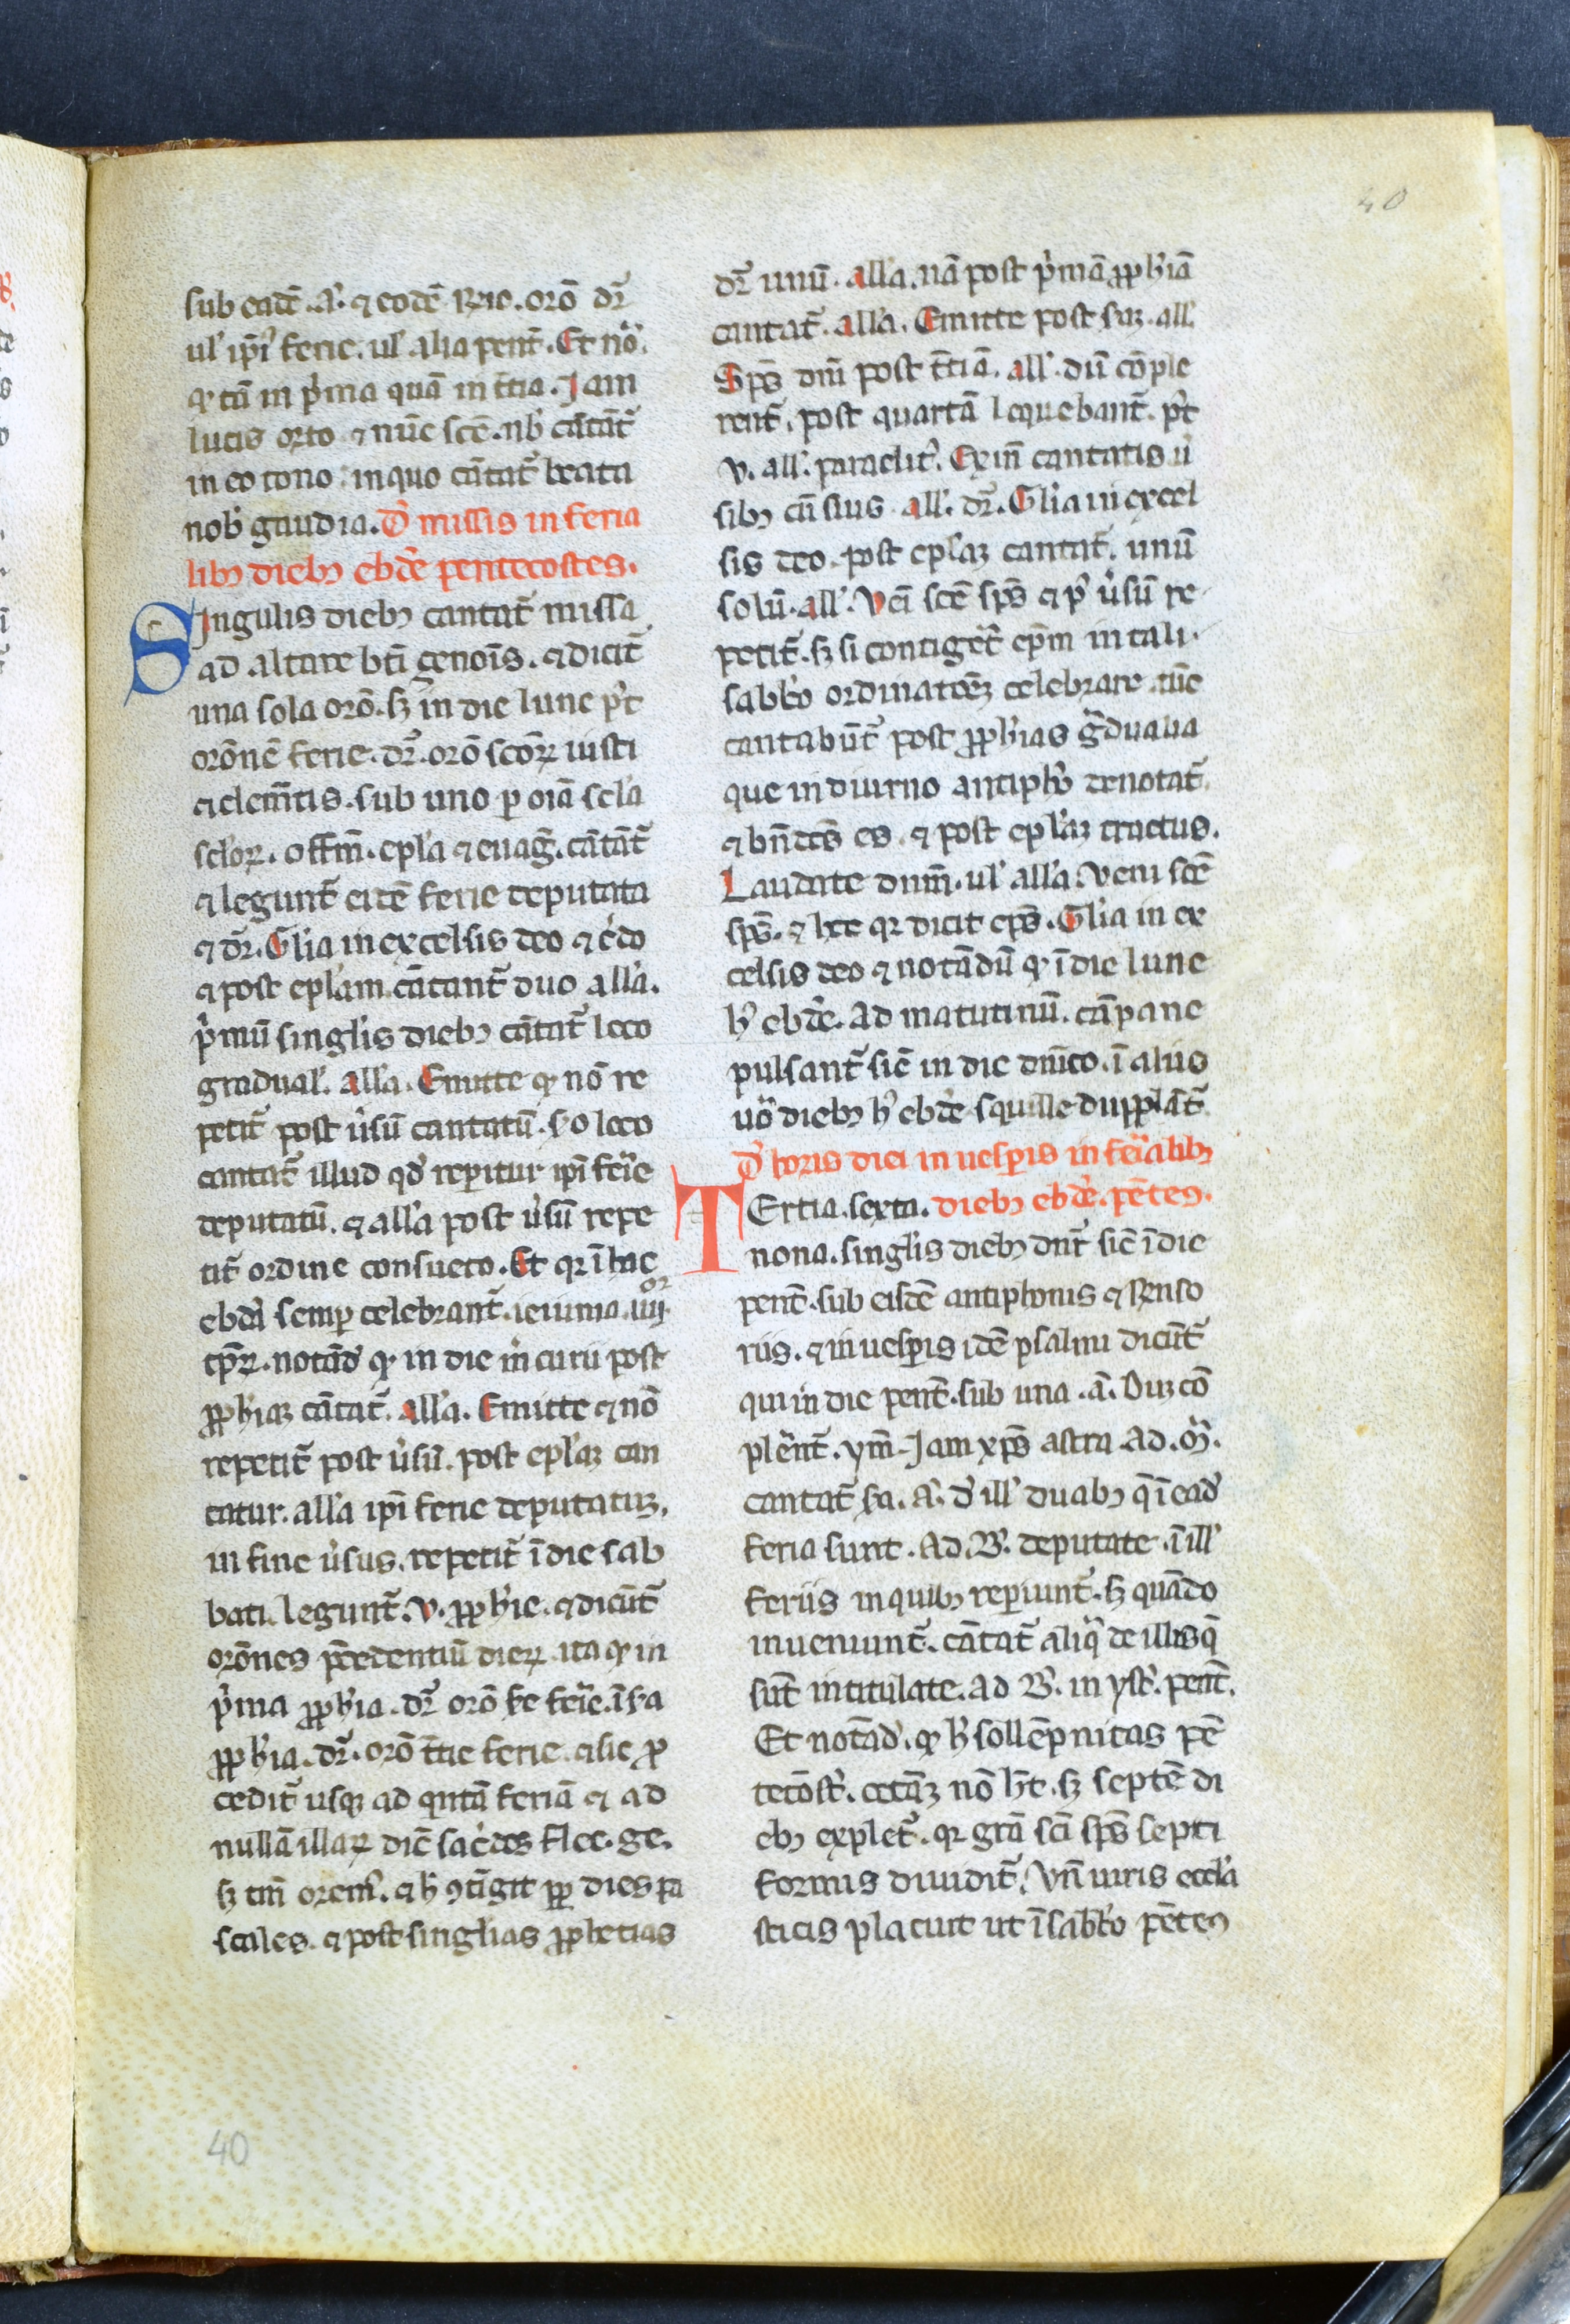 40
sub eadē .a᷒. ⁊ eodē Rꝛio. orō dr̄
ul' ip̄i' ferie. ul' alia pent̄. Et nō.
ꝙ tā in p̄ma quā in t̄tia. Jam
lucis orto ⁊ nūc scē. nb' cātāt̄
in eo tono in quo cātat̄ beata
nob' gaudia. D' missis in feria
libꝫ diebꝫ ebd'e pentecostes.
Singulis diebꝫ cantat̄ missa
ad altare bt̄i genoīs. ⁊ dicit̄
una sola orō. sꝫ in die lune p't
orōnē ferie. dr̄. orō scōꝝ iusti
⁊ clem̄tis. sub uno p oīa scl'a
scl'oꝝ. offm̄. epl'a ⁊ euaḡ. cātāt̄
⁊ legunt̄ eidē ferie deputata
⁊ dr̄. Gl'ia in excelsis deo ⁊ c'do
⁊ post epl'am cātant̄ duo all'a.
p'mū singl'is diebꝫ cātat̄ loco
gradual'. all'a. Emitte ꝙ nō re
petit̄ post u'sū cantatū. s'o loco
cantat̄ illud qd' reperitur ip̄i fer̄ie
deputatū. ⁊ all'a post u'sū repe
tit̄ ordine consueto. Et qꝛ ī hac
ebd'a semꝑ celebrant̄ ieiunia .iiijoꝛ.
tp̄ꝝ. notād' ꝙ in die m'curii post
ꝓph'iaꝫ cātat̄. all'a. Emitte ⁊ nō
repetit̄ post u'sū. post epl'aꝫ can
tatur. all'a ip̄i ferie deputatuꝫ.
in fine u'sus. repetit̄ ī die sab
bati. legunt̄. v. ꝓph'ie. ⁊ dicūt̄
orōnes p̄cedentiū dieꝝ ita ꝙ in
p'ma ꝓph'ia. dr̄ orō s'e fer̄ie. ī s'a
ꝓph'ia. dr̄. orō t̄tie ferie. ⁊ sic ꝓ
cedit̄ usqꝫ ad qntā feriā ⁊ ad
nullā illaꝝ dic̄ sac'dos flec. ge.
sꝫ tm̄ orem'. ⁊ h' ꝯtīgit ꝓp dies pa
scales. ⁊ post singl'as ꝓphetias
dr̄ unū. all'a. nā post p'mā ꝓph'iā
cantat̄. all'a. Emitte post s'aꝫ. all'.
Sp̄s dn̄i post t̄tiā. all'. dū cōple
rent̄. post quartā loquebant̄. p't
v. all'. paraclit'. Exin̄ cantatis u'
sibꝫ cū suis all'. dr̄. Gl'ia in excel
sis deo. post epl'aꝫ cantat̄. unū
solū. all'. Vēi scē sp̄s ⁊ p' u'sū re
petit̄. sꝫ si contiget̄ ep̄m in tali
sabb'o ordinatōeꝫ celebrare. tūc
cantabūt̄ post ꝓph'ias ḡdualia
que in diurno antiph'o denotat̄.
⁊ bn̄dc̄s es. ⁊ post epl'aꝫ tractus.
Laudate dnm̄. ul' all'a. Veni scē
sp̄s. ⁊ hec qꝛ dicit ep̄s. Gl'ia in ex
celsis deo ⁊ notādū ꝙ ī die lune
h' ebd'e. Ad matutinū. cāpane
pulsant̄ sic̄ in die dn̄ico. ī aliis
uō diebꝫ h' ebd'e squille duppl'āt̄
D' horis diei in uesꝑis in fer̄iabꝫ
Tertia. sexta. diebꝫ ebd'e. pētes.
nona. singl'is diebꝫ dn̄t̄ sic̄ ī die
pent̄. sub eisdē antiphonis ⁊ Rens̄o
riis. ⁊ in uesꝑis idē psalmi dicūt̄
qui in die pent̄. sub una .a. Duꝫ cō
plēnt̄. ym̄. Jam xp̄s astra. Ad .M.
cantat̄ s'a. a. d' ill' duabꝫ q̄ ī ead'
feria sunt. Ad. B'. deputate. ī ill'
feriis in quibꝫ reꝑiunt̄. sꝫ quādo
inueniunt̄. cātat̄ aliq̄ de illis q̄
sūt intitulate. ad B'. in yst'. pent̄.
Et notād'. ꝙ h' sollēpnitas pē
tecōst'. octāuaꝫ nō h̄t. sꝫ septē di
ebꝫ explet̄. qꝛ gr̄a sc̄i sp̄s septi
formis diuidit̄. Vn̄ uiris eccl'a
sticis placuit ut ī sabb'o pētes
40